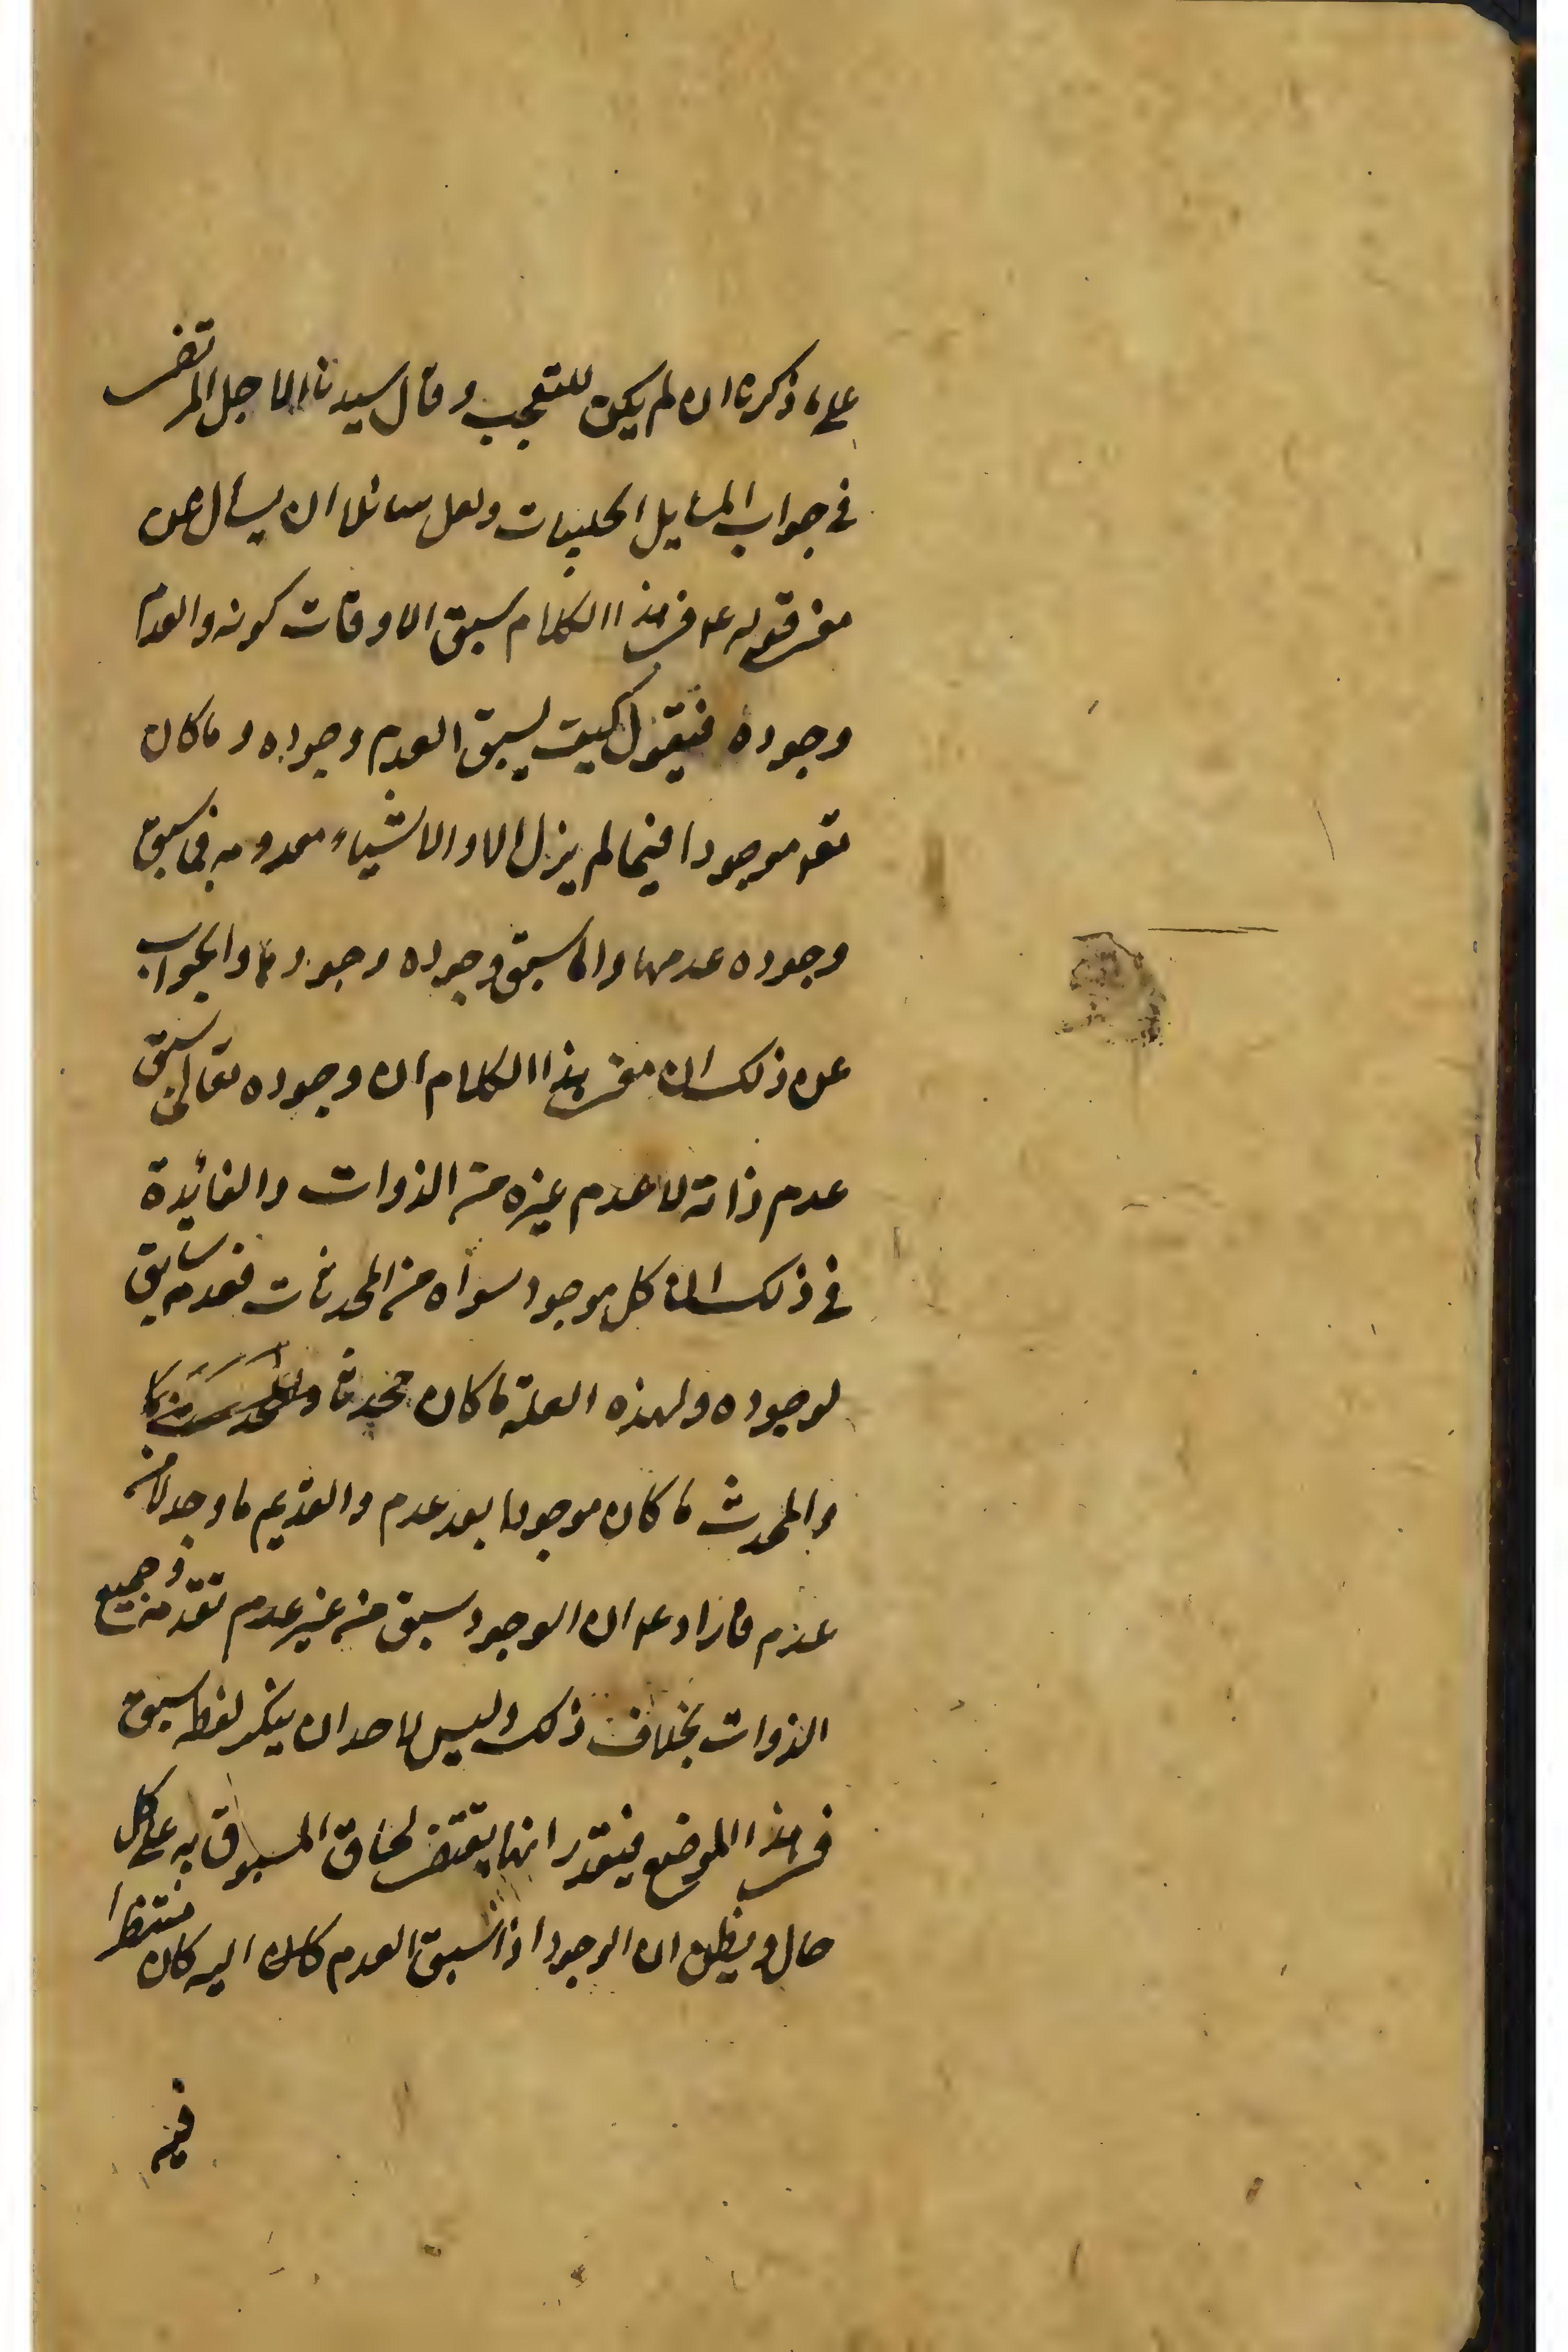 على ما ذكرة ان لم يكن للتعجب وقال سيدنا الاجل المرتضى
في جواب المسايل الحلبيات ولعل سائلا ان يسأل عن
معنى قوله ع في هذا الكلام سبق الاوقات كونه والعدم
وجوده فيقول كيف يسبق العدم وجوده وما كان
تعه موجودا فيما لم يزل الا والاشياء معدومه فما سبق
وجوده عدمها وانما سبق وجوده وجودها والجواب
عن ذلك ان معنى هذا الكلام ان وجوده تعالى سبق
عدم ذاته لا عدم غيره من الذوات والفائدة
في ذلك ان كل موجود سواه من المحدثات فعدمه سابق
لوجوده ولهذه العلة ما كان محدثا
والمحدث ما كان موجودا بعد عدم والقديم ما وجد لا من
عدم فاراد ع ان الوجود سبق من غير عدم تقدمه وجميع
الذوات بخلاف ذلك وليس لاحد ان ينكر لفظه سبق
في هذا الموضع فيقدر انها يقتضى لحاق المسبوق به على كل
حال ويظن ان الوجود اذا سبق العدم كان اليه كان منتظرا
فيه